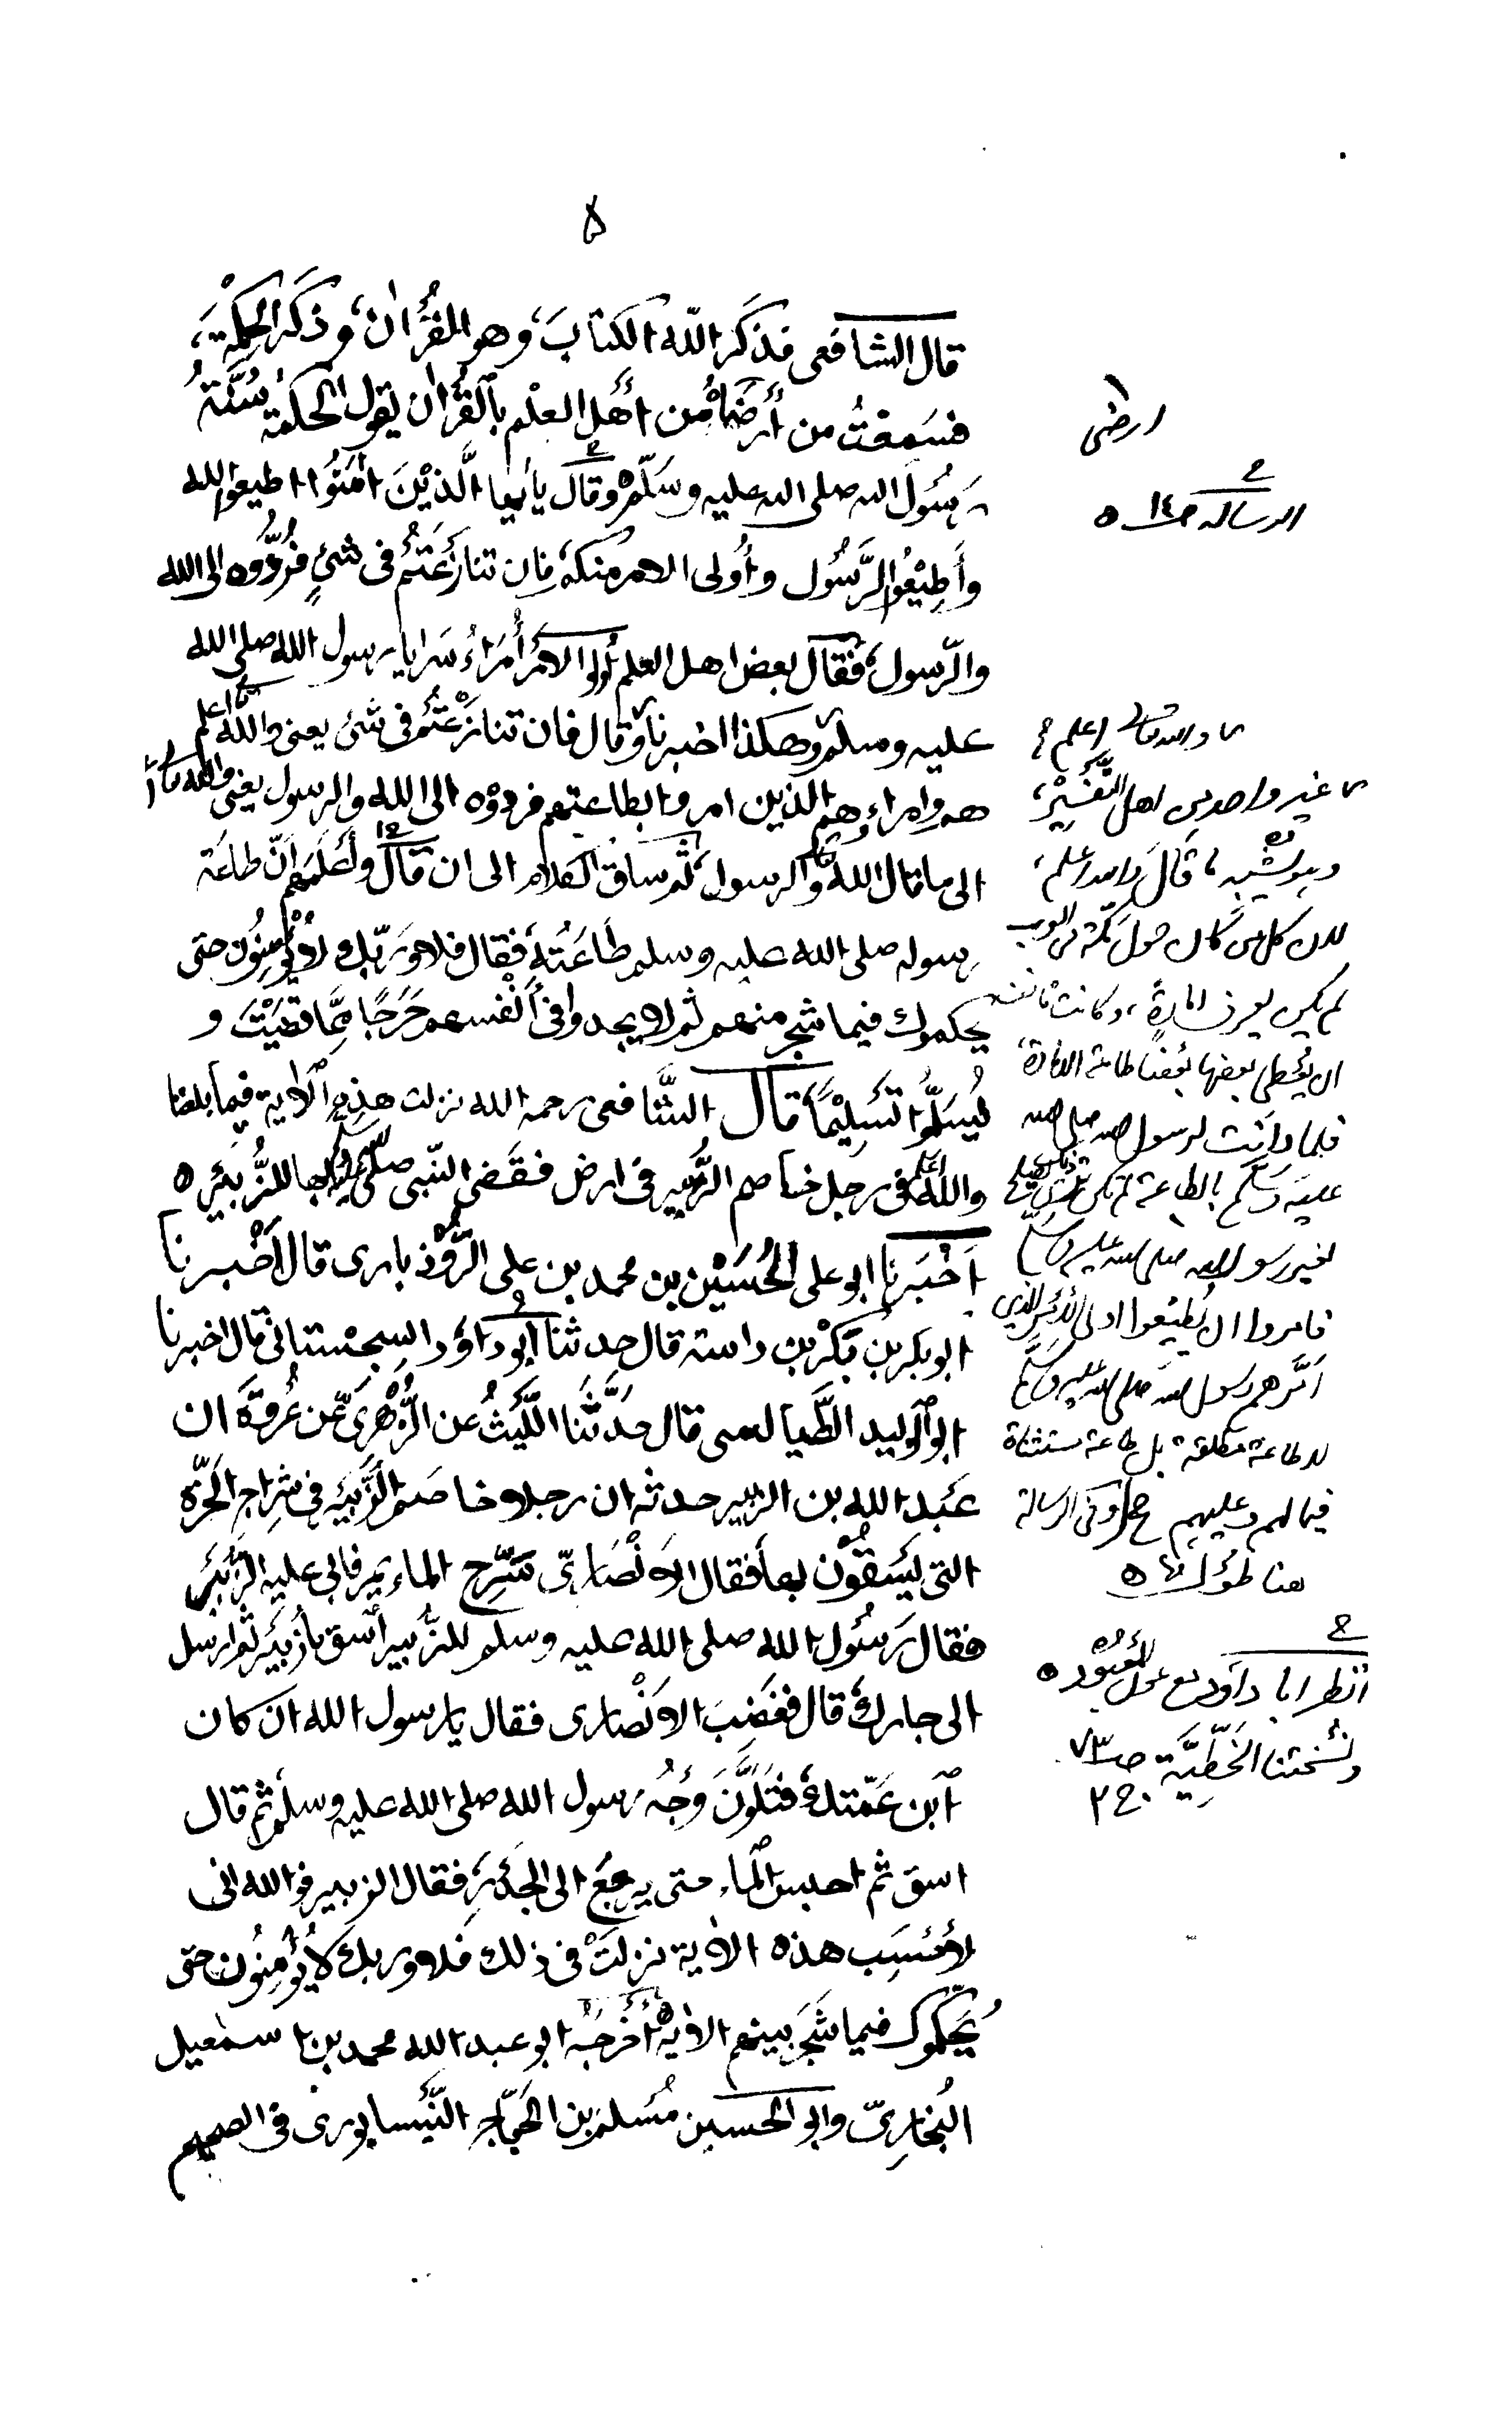 ٥
قال الشافعى فذكر الله الكتابَ، وهو القُرْاٰن، وذكَر الحِكْمَةَ،
فسَمِعْتُ من أَرْضَاهُ مِن أَهْل العِلْم بالقُرْاٰن يقول الحكمة سُنَّةُ
رسُول الله صلى الله عليه وسلّم وقال يا أيها الَّذِيْنَ اٰمَنُوا اطيعوا الله
وأَطِيْعُوا الرَّسُول وأُولى الامر منكم فان تنازَعْتُمْ فى شئٍ فرُدُّوه الى الله
والرّسول، فقال بعض اهل العلم أُولوا الامْر أُمَرَاءُ سَرايا رسول الله صلى الله
عليه وسلم وهكذا اخبرنا وقال فان تنازَعْتُم فى شئ يعنى والله اعلم
هم وامراءهم الذين امروا بطاعتهم فردوه الى الله والرسول يعنى والله
الى ما قال الله والرسول، ثم ساق الكلام الى ان قال وأَعْلَمَهم أنّ طاعَة
رسوله صلى الله عليه وسلم طَاعَتُه، فقال فلا وَرَبّك لا يُؤْمِنُون حتى
يحكموك فيما شجر منهم ثم لا يجدوا فى أَنْفُسهم حَرَجًا مِمَّا قَضَيْتَ و
يُسَلِّمُوا تَسْلِيْمًا قال الشَّافعى رحمه الله نزلت هذه الاٰية فيما بلغنا
والله اعلم فى رجل خاصم الزُّبير فى ارض فقَضى النّبى صلى بها للزُّبَيْر ه
اَخْبَرنا ابو على الحُسَيْن بن محمد بن على الرُّوْذبارى قال اَخْبرنا
ابو بكر بن بَكْر بن داسة قال حدثنا أبو داؤد السِجْستانى قال اخبرنا
ابو الوليد الطَّيالسى قال حَدَّثَنا اللَّيْثُ عن الزُّهْرىّ عن عُروَةَ ان
عَبد الله بن الزبير حدثه ان رجلا خاصَم الزُّبَيْر فى شِراج الحَرّة
التى يَسْقُوْن بها فقال الاَنْصَارِىّ سَرِّح الماء يمر فابى عليه الزُّبَيْر
فقال رَسُول الله صلى الله عليه وسلم للزُّبير أسق يا زُبَيْر ثم ارسل
الى جارك، قال فغَضِبَ الاَنْصارى فقال يا رسول الله اَن كان
اَبن عَمّتك، فتَلَوَّنَ وَجْهُ رسول الله صلى الله عليه وسلم ثم قال
اسق ثم احبس الماء حتى يرجع الى الجَدْرِ، فقال الزبير فو الله انى
لأَحْسَب هذه الاٰية نزلَتْ فى ذلك فلا وربك لا يُؤْمِنُون حتى
يُحَكِّموك فيما شَجَر بينهم الاٰية أَخرجَه ابو عبد الله محمد بن اسمٰعيل
البُخارِىّ وابو الحسين مُسْلم بن الحَجّاج النَّيْسابورى فى الصحيح
ارضى
الرسالة صـ١٤ ه
والله تعالى اعلم
غير واحد من اهل التَّفْسِيْر،
وهو يشبه ما قال والله اعلم،
لان كل من كان حولَ مكّة من العرب
لم يكن يعرف امارةً، وكانت تأنف
ان يُعْطى بعضها بَعْضا طاعة الامارة،
فلما دانَت لرسول الله صلى الله
عليه وسلم بالطاعة لم تكن ترى ذلك يصلح
لغير رسول الله صلى الله عليه وسلّم
فامروا ان يُطيْعوا اولى الأَمْر الذين
اَمَّرهم رسول الله صلى الله عليه وسلم
لا طاعة مطلقة بل طاعة مستثناة
فيما لهم وعليهم وفى الرسالة
هنا طول ه
انظر ابا داؤد مع عون المَعْبُوْد ه
ونُسْخَتنا الخَطِّيَّة صـ٧٣
ج ٢